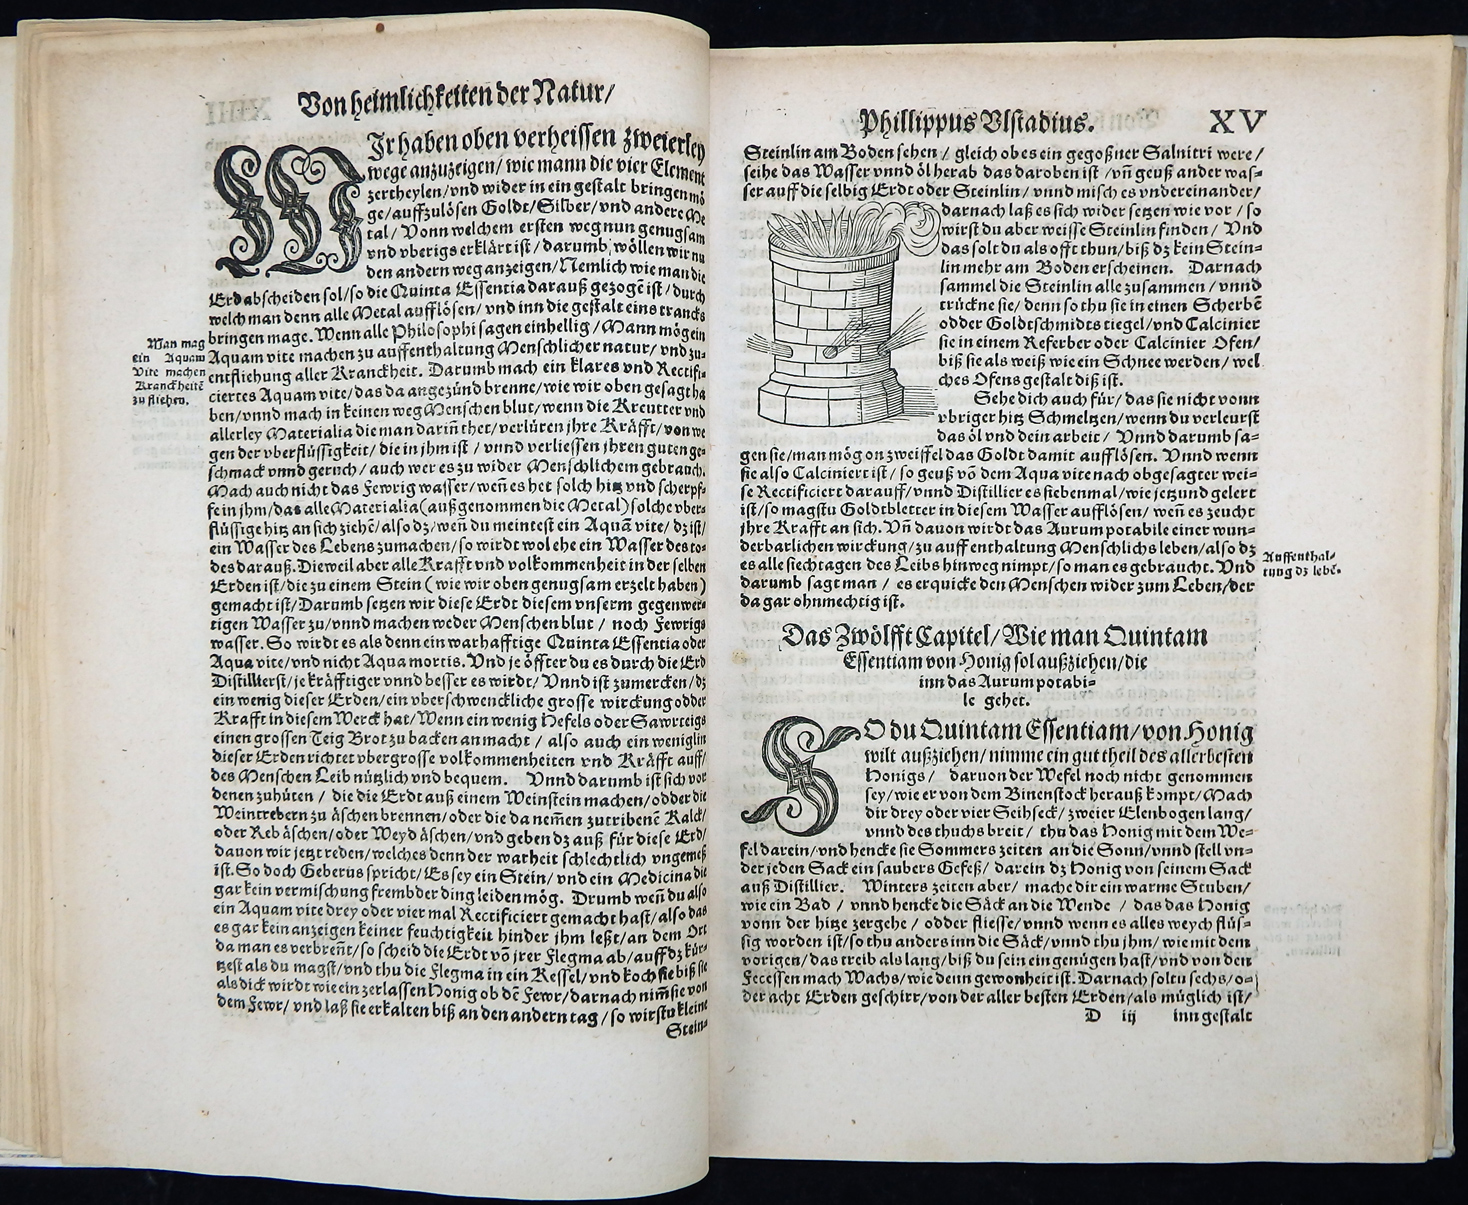 Von heimlichkeiten der Natur/
WIr haben oben verheissen zweierley
wege anzuzeigen/ wie mann die vier Element
zertheylen/ vnd wider in ein gestalt bringen mö
ge/ auffzulösen Goldt/ Silber/ vnd andere Me
tal/ Vonn welchem ersten weg nun genugsam
vnd vberigs erklärt ist/ darumb wöllen wir nu
den andern weg anzeigen/ Nemlich wie man die
Erd abscheiden sol/ so die Quinta Essentia darauß gezogē ist/ durch
welch man denn alle Metal aufflösen/ vnd inn die gestalt eins trancks
bringen mage. Wenn alle Philosophi sagen einhellig/ Mann mög ein
Aquam vite machen zu auffenthaltung Menschlicher natur/ vnd zu-
entfliehung aller Kranckheit. Darumb mach ein klares vnd Rectifi-
ciertes Aquam vite/ das da angezünd brenne/ wie wir oben gesagt ha
ben/ vnnd mach in keinen weg Menschen blut/ wenn die Kreutter vnd
allerley Materialia die man dariñ thet/ verlüren jhre Kräfft/ von we
gen der vberflüssigkeit/ die in jhm ist/ vnnd verliessen jhren guten ge-
schmack vnnd geruch/ auch wer es zu wider Menschlichem gebrauch.
Mach auch nicht das Fewrig wasser/ weñ es het solch hitz vnd scherpf-
fe in jhm/ das alle Materialia (außgenommen die Metal) solche vber-
flüssige hitz an sich ziehē/ also dz/ weñ du meintest ein Aquā vite/ dz ist/
ein Wasser des Lebens zumachen/ so wirdt wol ehe ein Wasser des to-
des darauß. Dieweil aber alle Krafft vnd volkommenheit in der selben
Erden ist/ die zu einem Stein (wie wir oben genugsam erzelt haben)
gemacht ist/ Darumb setzen wir diese Erdt diesem vnserm gegenwer-
tigen Wasser zu/ vnnd machen weder Menschen blut/ noch Fewrigs
wasser. So wirdt es als denn ein warhafftige Quinta Essentia oder
Aqua vite/ vnd nicht Aqua mortis. Vnd je öffter du es durch die Erd
Distillierst/ je kräfftiger vnnd besser es wirdt/ Vnnd ist zumercken/ dz
ein wenig dieser Erden/ ein vberschwenckliche grosse wirckung odder
Krafft in diesem Werck hat/ Wenn ein wenig Hefels oder Sawrteigs
einen grossen Teig Brot zu backen anmacht/ also auch ein weniglin
dieser Erden richtet vbergrosse volkommenheiten vnd Kräfft auff/
des Menschen Leib nützlich vnd bequem. Vnnd darumb ist sich vor
denen zuhüten/ die die Erdt auß einem Weinstein machen/ odder die
Weintrebern zu äschen brennen/ oder die da nemen zutribenē Kalck/
oder Reb äschen/ oder Weyd äschen/ vnd geben dz auß für diese Erd/
dauon wir jetzt reden/ welches denn der warheit schlechtlich vngemeß
ist. So doch Geberus spricht/ Es sey ein Stein/ vnd ein Medicina die
gar kein vermischung frembder ding leiden mög. Drumb weñ du also
ein Aquam vite drey oder vier mal Rectificiert gemacht hast/ also das
es gar kein anzeigen keiner feuchtigkeit hinder jhm leßt/ an dem Ort
da man es verbreñt/ so scheid die Erdt vō jrer Flegma ab/ auff dz kür-
tzest als du magst/ vnd thu die Flegma in ein Kessel/ vnd koch sie biß sie
als dick wirdt wie ein zerlassen Honig ob dē Fewr/ darnach niṁ sie von
dem Fewr/ vnd laß sie erkalten biß an den andern tag/ so wirstu kleine
Stein-
Man mag
ein Aquam
Vite machen
Kranckheitē
zu fliehen.
Phillippus Vlstadius. XV
Steinlin am Boden sehen/ gleich ob es ein gegoßner Salnitri were/
seihe das Wasser vnnd öl herab das daroben ist/ vñ geuß ander was-
ser auff die selbig Erdt oder Steinlin/ vnnd misch es vndereinander/
darnach laß es sich wider setzen wie vor/ so
wirst du aber weisse Steinlin finden/ Vnd
das solt du als offt thun/ biß dz kein Stein-
lin mehr am Boden erscheinen. Darnach
sammel die Steinlin alle zusammen/ vnnd
trückne sie/ denn so thu sie in einen Scherbē
odder Goldtschmidts tiegel/ vnd Calcinier
sie in einem Referber oder Calcinier Ofen/
biß sie als weiß wie ein Schnee werden/ wel
ches Ofens gestalt diß ist.
Sehe dich auch für/ das sie nicht vonn
vbriger hitz Schmeltzen/ wenn du verleurst
das öl vnd dein arbeit/ Vnnd darumb sa-
gen sie/ man mög on zweiffel das Goldt damit aufflösen. Vnnd wenn
sie also Calciniert ist/ so geuß vō dem Aqua vite nach obgesagter wei-
se Rectificiert darauff/ vnnd Distillier es siebenmal/ wie jetzund gelert
ist/ so magstu Goldtbletter in diesem Wasser aufflösen/ weñ es zeucht
jhre Krafft an sich. Vñ dauon wirdt das Aurum potabile einer wun-
derbarlichen wirckung/ zu auffenthaltung Menschlichs leben/ also dz
es alle siechtagen des Leibs hinweg nimpt/ so man es gebraucht. Vnd
darumb sagt man/ es erquicke den Menschen wider zum Leben/ der
da gar ohnmechtig ist.
Auffenthal-
tung dz lebē.
Das Zwölfft Capitel/ Wie man Quintam
Essentiam von Honig sol außziehen/ die
inn das Aurum potabi-
le gehet.
SO du Quintam Essentiam/ von Honig
wilt außziehen/ nimme ein gut theil des allerbesten
Honigs/ daruon der Wefel noch nicht genommen
sey/ wie er von dem Binenstock herauß kompt/ Mach
dir drey oder vier Seihseck/ zweier Elenbogen lang/
vnnd des thuchs breit/ thu das Honig mit dem We-
fel darein/ vnd hencke sie Sommers zeiten an die Sonn/ vnnd stell vn-
der jeden Sack ein saubers Gefeß/ darein dz Honig von seinem Sack
auß Distillier. Winters zeiten aber/ mache dir ein warme Stuben/
wie ein Bad/ vnnd hencke die Säck an die Wende/ das das Honig
vonn der hitze zergehe/ odder fliesse/ vnnd wenn es alles weych flüs-
sig worden ist/ so thu anders inn die Säck/ vnnd thu jhm/ wie mit dem
vorigen/ das treib als lang/ biß du sein ein genügen hast/ vnd von den
Fecessen mach Wachs/ wie denn gewonheit ist. Darnach soltu sechs/ o-
der acht Erden geschirr/ von der aller besten Erden/ als müglich ist/
D iij inn gestalt